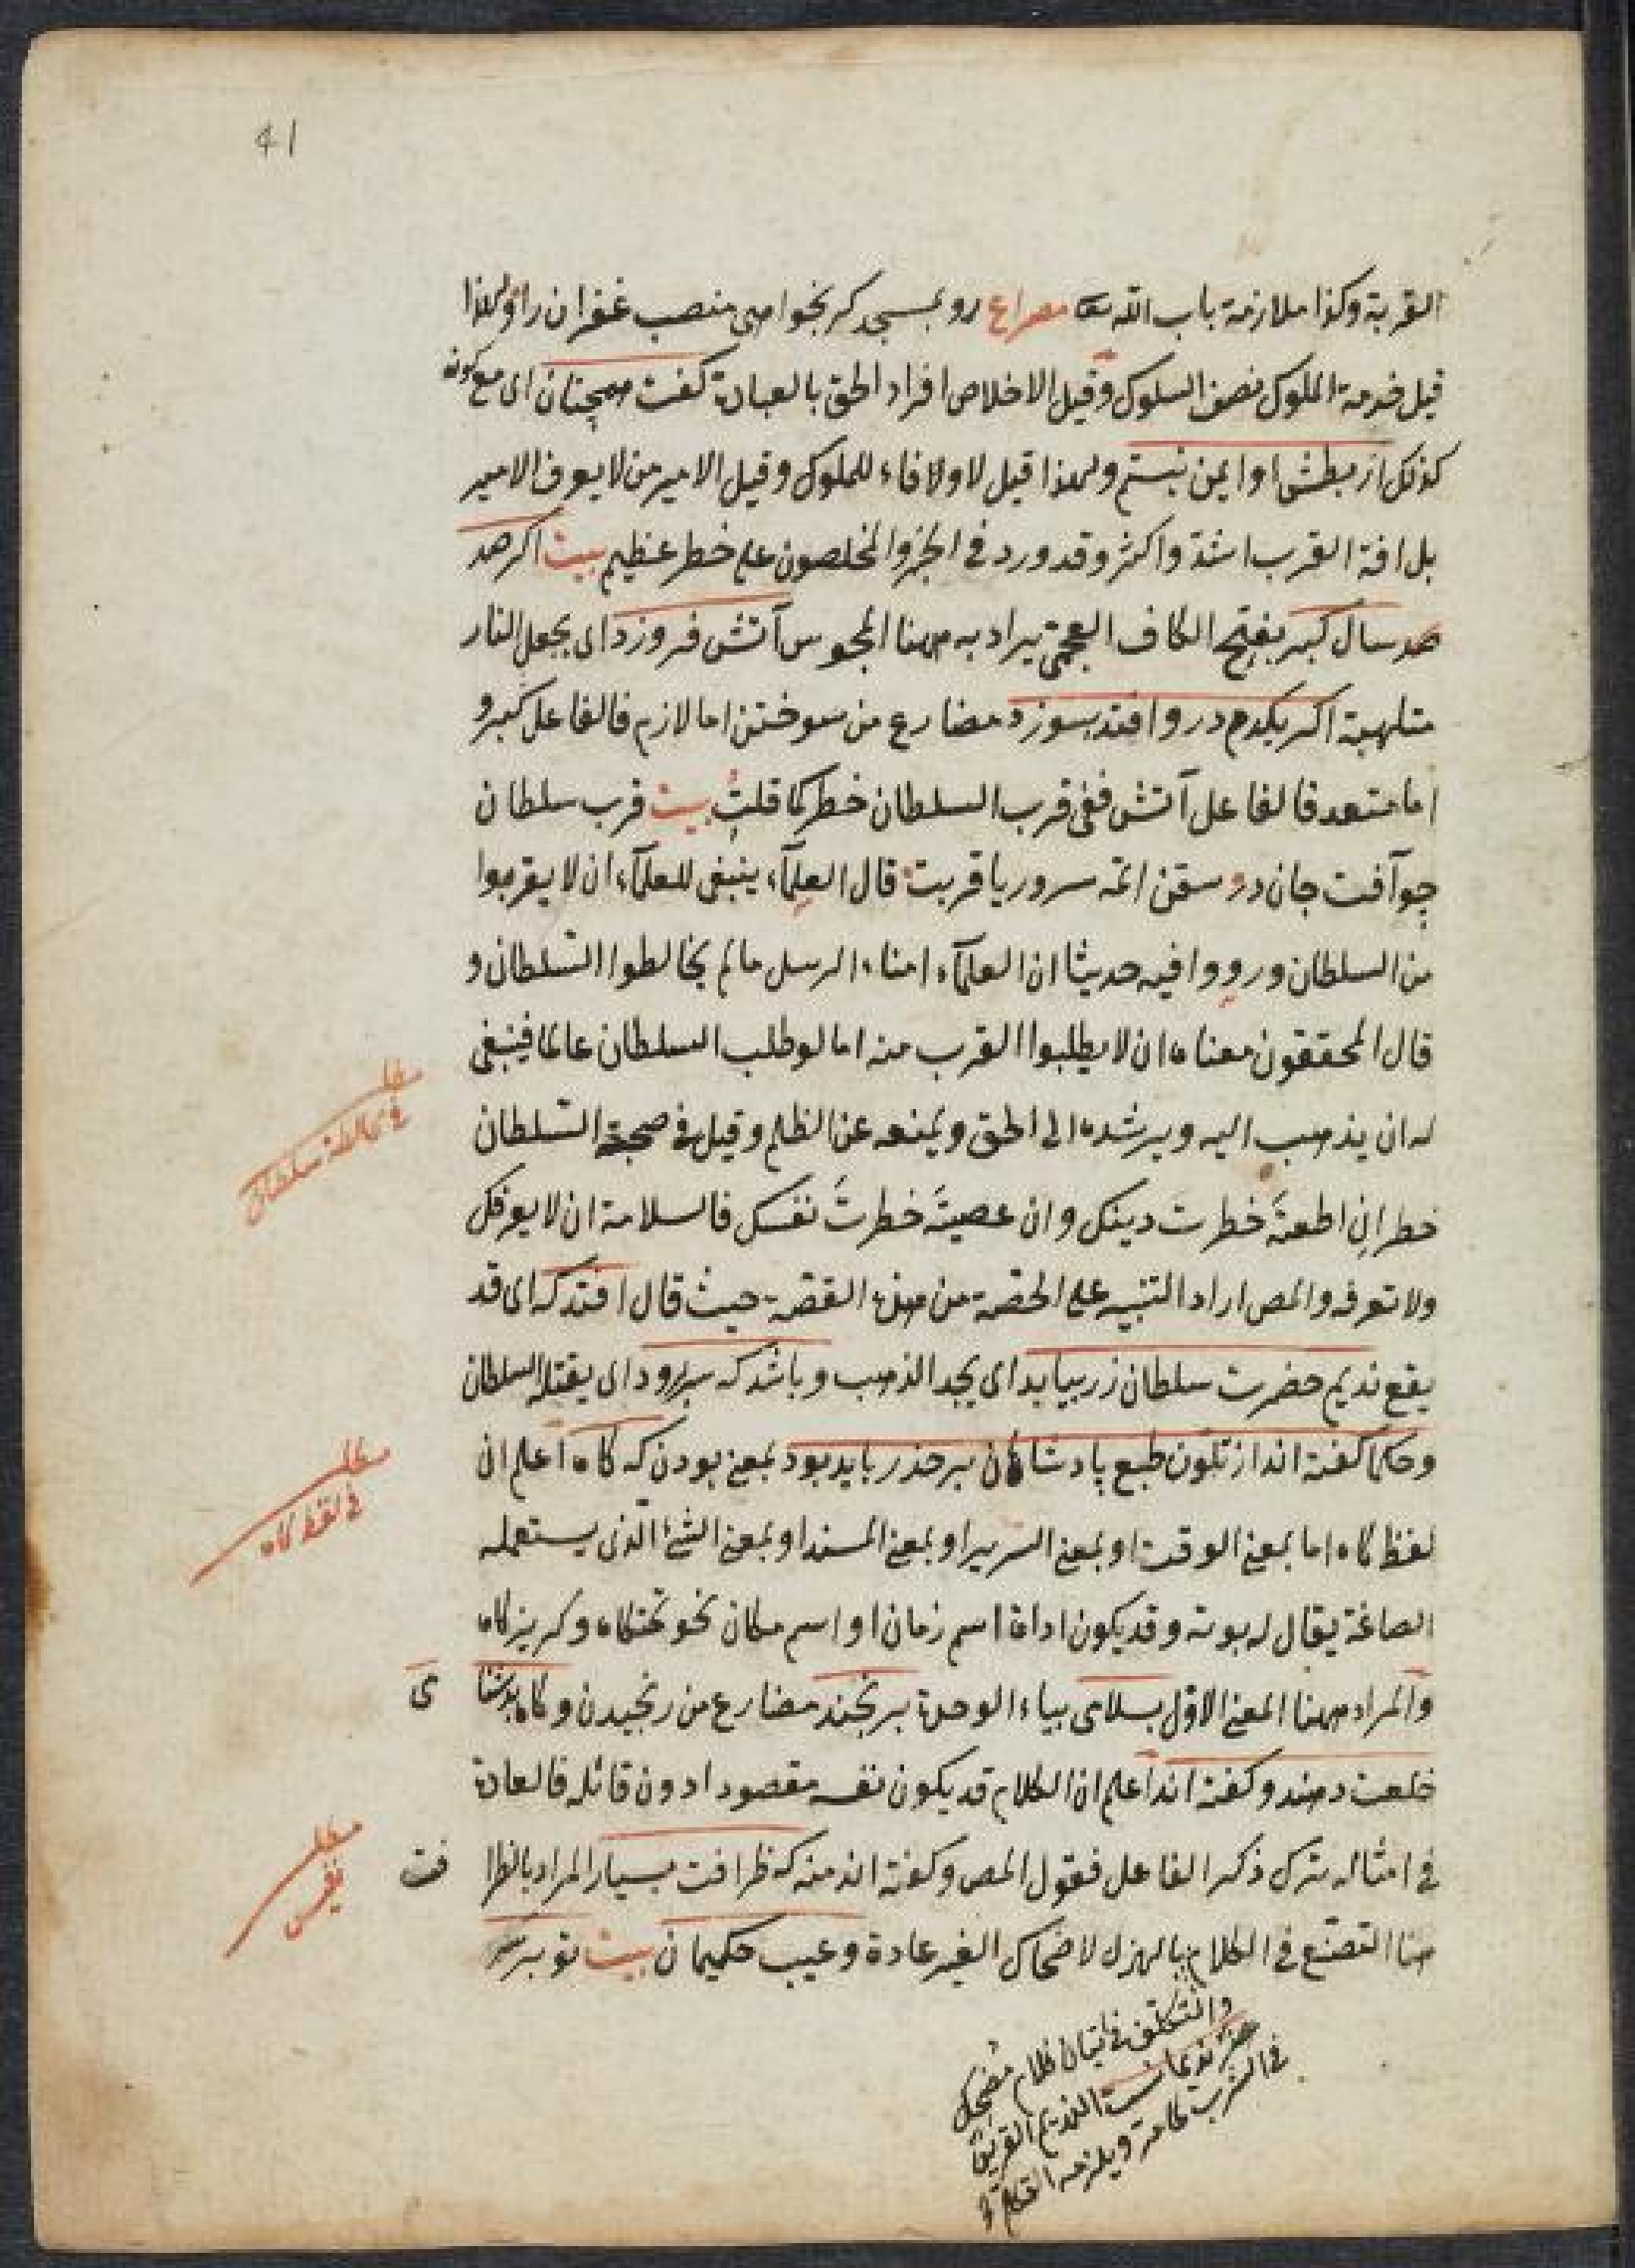 41
القربة وكذا ملازمة باب الله تعالى مصراع رو بمسجد كر بخواهى منصب غفران را ولهذا
قيل خدمة الملوك نصف السلوك وقيل الاخلاص افراد الحق بالعبادة كفت همچنان اى مع كونه
كذلك از بطش او ايمن نيستم ولهذا قيل لا ولا فاء للملوك وقيل الامير من لا يعرف الامير
بل افة القرب اشد واكثر وقد ورد فى الخبر والمخلصون على خطر عظيم بيت اكر صد
صد سال كبر بفتح الكاف العجمى يراد به ههنا المجوس آتش فروزد اى يجعل النار
متلهبة اكر يكدم درو افتد بسوزد مضارع من سوختن اما لازم فالفاعل كبر و
اما متعد فالفاعل آتش ففى قرب السلطان خطر كما قلت بيت قرب سلطان
چو آفت جان در سرور يا قربت قال العلماء ينبغى للعلماء ان لا يقربوا
من السلطان ورووا فيه حديثا ان العلماء امناء الرسل مالم يخالطوا السلطان و
قال المحققون معناه ان لا يطلبوا القرب منه اما لو طلب السلطان عالما فينبغى
له ان يذهب اليه ويرشده الى الحق ويمنعه عن الظلم وقيل فى صحبة السلطان
خطر ان اطعته خطرت دينك وان عصيته خطرت نفسك فالسلامة ان لا يعرفك
ولا تعرفه والمص اراد التنبيه على الحصة من هذه القصة حيث قال افتد كه اى قد
يقع نديم حضرت سلطان زر بيابد اى يجد الذهب وباشد كه سر برود اى يقتله السلطان
وحكما كفته اند از تلون طبع پادشاهان بر حذر بايد بود بمعنى بودن كه كاه اعلم ان
لفظ كاه اما بمعنى الوقت او بمعنى السرير او بمعنى المسند او بمعنى الشئ الذى يستعمله
الصاغة يقال له بوته وقد يكون اداة اسم زمان او اسم مكان نحو تختكاه وكريزكاه
والمراد ههنا المعنى الاول بسلامى بياء الوحدة برنجند مضارع من رنجيدن وكاه بدشنا مى
خلعت دهند وكفته اند اعلم ان الكلام قد يكون نفسه مقصودا دون قائله فالعادة
فى امثاله ترك ذكر الفاعل فقول المص وكفته اند منه كه ظرافت بسيار المراد بالظرا فت
هنا التصنع فى الكلام بالهزل لاضحاك الغير عادة وعيب حكيمان بيت تو بر سر
والتكلف فى اتيان كلام مضحك
هنر نديمانست النديم القرين
فى الشرب
مطلب
فى مخالطة سلطان
مطلب
فى لفظ كاه
مطلب
نفيس